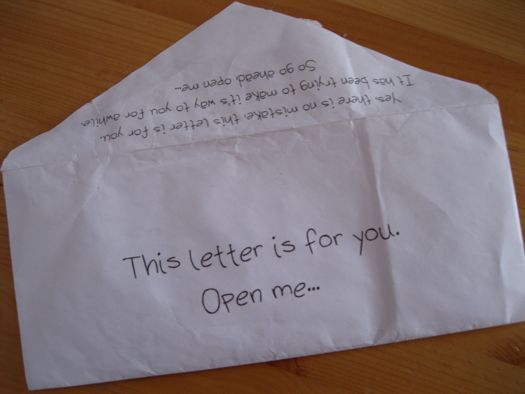 Yes, there is no mistake, this letter is for you.
It has been trying to make it's way to you for awhile.
So go ahead, open me...
This letter is for you.
Open me...